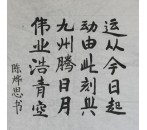 运从今日起
动由此刻兴
九州腾日月
伟业浩青空
陈烨思书